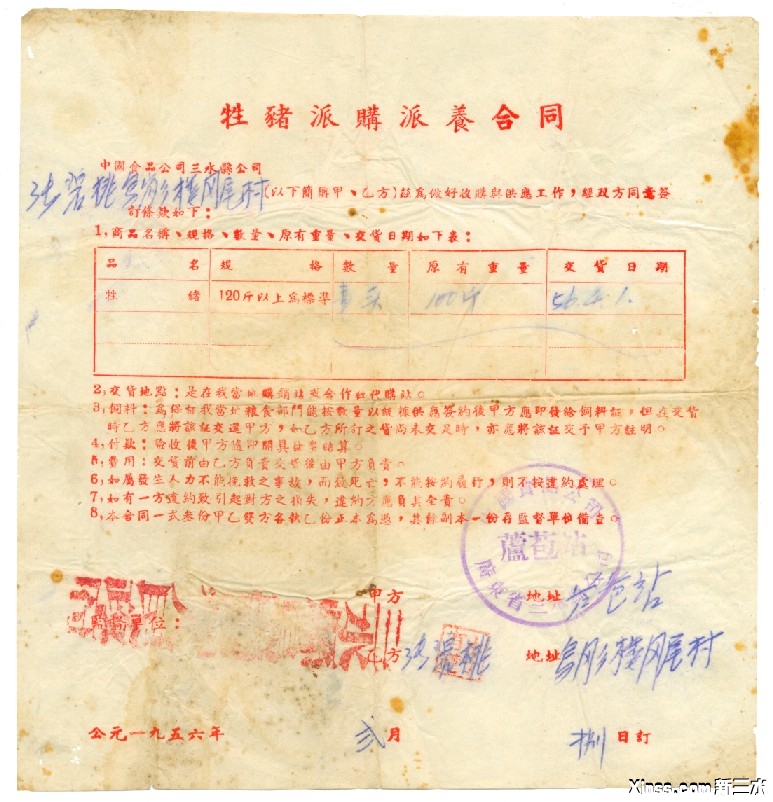 牲豬派購派養合同
中國食品公司三水縣公司
(以下簡稱甲、乙方)茲為做好收購與供應工作,經双方同意簽
訂條款如下:
1,商品名稱、規格、數量、原有重量、交貨日期如下表:
品名 規格 數量 原有重量 交貨日期
牲豬 120斤以上爲標準 壹头 100斤 56.4.1.
2,交貨地點:是在我當地購銷站或合作社代購站。
3,飼料:為保証我當地粮食部門能按數量以組織供應簽約後甲方應即發給飼料証,但在交貨
時乙方應將該証交還甲方,如乙方所訂之貨尚未交足時,亦應將該証交予甲方註明。
4,付款:驗收後甲方隨即開具結算。
5,費用:交貨前由乙方負責交貨後由甲方負責。
6,如屬發生人力不能挽救之事故,而致死亡,不能按約履行,則不按違約處理。
7,如有一方違約致引起對方之損失,違約方應負其全責。
8,本合同一式叁份甲乙雙方各執乙份正本為憑,其餘副本一份存監督單位備查。
蘆苞站
廣東省三水
甲方 地址
位:
乙方 桃 地址 村
公元一九五六年 弍月 捌日訂
Xinss.com新三水